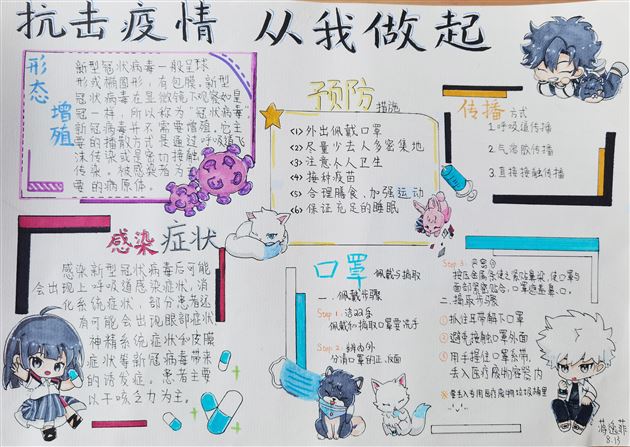 抗击疫情 从我做起
形态
增殖
新型冠状病毒一般呈球
形或椭圆形，有包膜，新型
冠状病毒在显微镜下观察如皇
冠一样，所以称为"冠状病毒"
新冠病毒并不需要增殖，它主
要的播散方式是通过呼吸道飞
沫传染或是密切接触
传染。被感染者为主
要的病原体。
预防措施
<1>外出佩戴口罩
<2>尽量少去人多密集地
<3>注意个人卫生
<4>接种疫苗
<5>合理膳食，加强运动
<6>保证充足的睡眠
传播方式
1.呼吸道传播
2.气溶胶传播
3.直接接触传播
感染症状
感染新型冠状病毒后可能
会出现上呼吸道感染症状，消
化系统症状，部分患者还
有可能会出现眼部症状
神精系统症状和皮废
症状等新冠病毒带来
的诱发症。患者主要
以干咳乏力为主。
口罩佩戴与摘取
一.佩戴步骤
Step 1:洁双手
佩戴和摘取口罩要洗手
Step 2:辨内外
分清口罩的正、反面
Step 3:
按压金属条使之紧贴鼻梁，使口罩与
面部紧密贴合，口罩遮盖鼻、口。
二.摘取步骤
①抓住耳带解下口罩
②避免接触口罩外面
③用手捏住口罩系带，
丢入医疗废物容器内
※要丢入专用医疗废物垃圾桶里
8.13